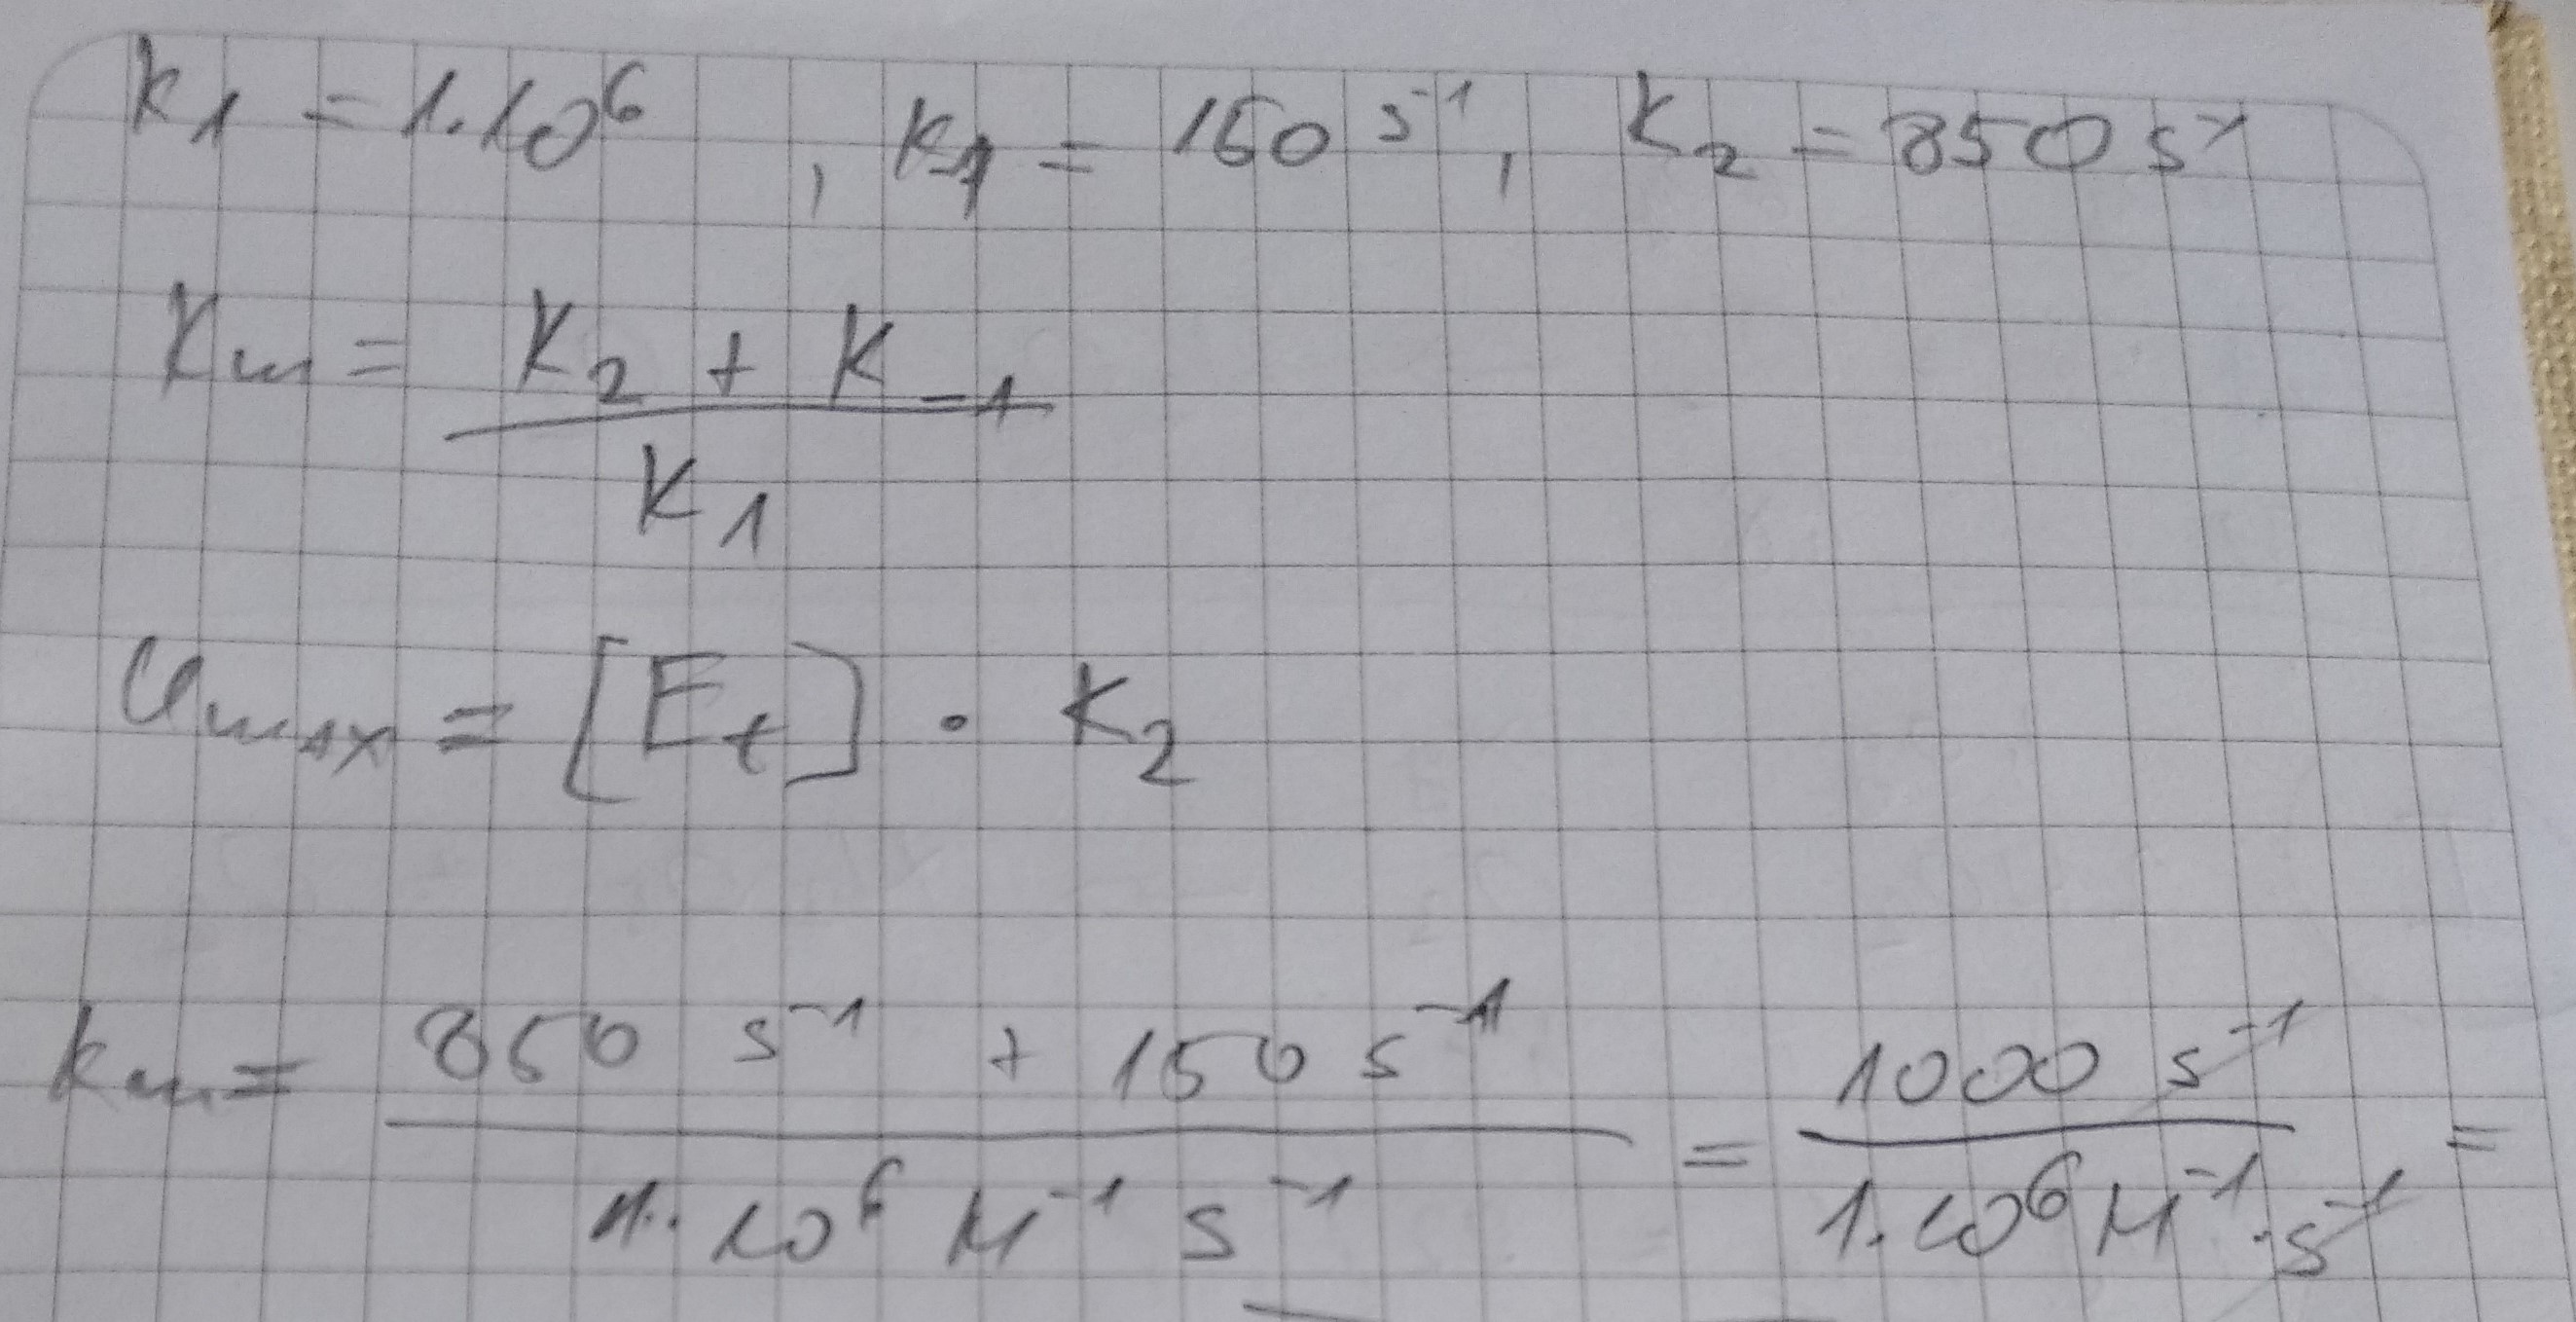 k₁ = 1.10⁶ , k₋₁ = 150 s⁻¹ , k₂ = 850 s⁻¹
Km = (k₂ + k₋₁) / k₁
υmax = [Et] · k₂
km = (850 s⁻¹ + 150 s⁻¹) / (1.10⁶ M⁻¹ s⁻¹) = (1000 s⁻¹) / (1.10⁶ M⁻¹ · s⁻¹) =